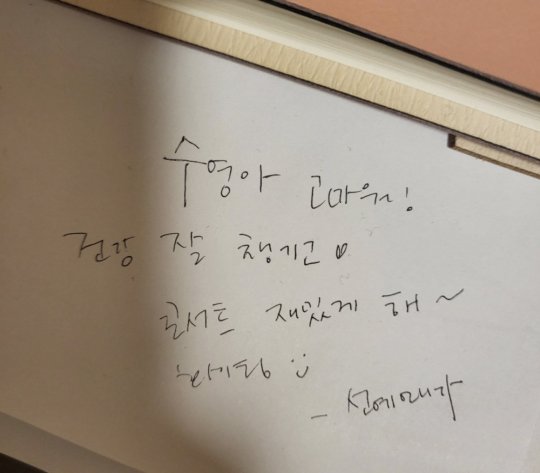 수영아 고마워!
건강 잘 챙기고♥
콘서트 재밌게 해~
화이팅 :)
- 선예가